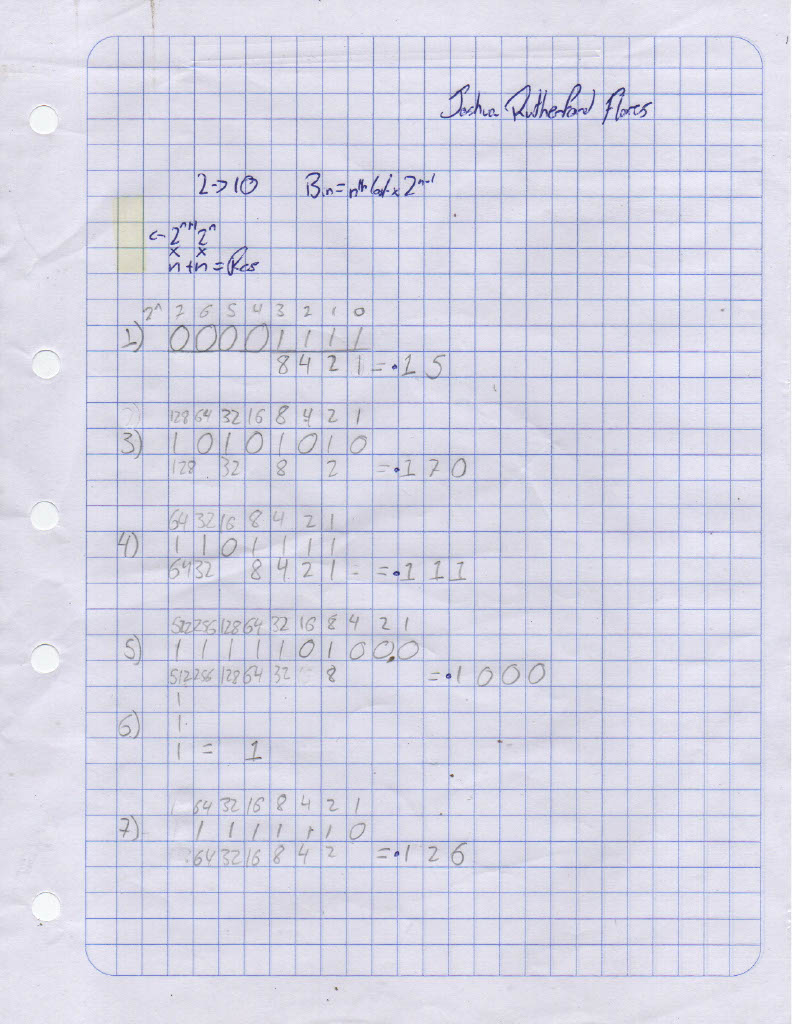 Joshua Rutherford Flores
2->10 Bin=nth bit x 2^n-1
<- 2^n+1 2^n
x x
n + n = Res
2^n 7 6 5 4 3 2 1 0
1) 0 0 0 0 1 1 1 1
8 4 2 1 = . 1 5
128 64 32 16 8 4 2 1
3) 1 0 1 0 1 0 1 0
128 32 8 2 = . 1 7 0
64 32 16 8 4 2 1
4) 1 1 0 1 1 1 1
64 32 8 4 2 1 = . 1 1 1
512 256 128 64 32 16 8 4 2 1
5) 1 1 1 1 1 0 1 0 0 0
512 256 128 64 32 8 = . 1 0 0 0
1
6) 1
1 = 1
64 32 16 8 4 2 1
7) 1 1 1 1 1 1 0
64 32 16 8 4 2 = . 1 2 6